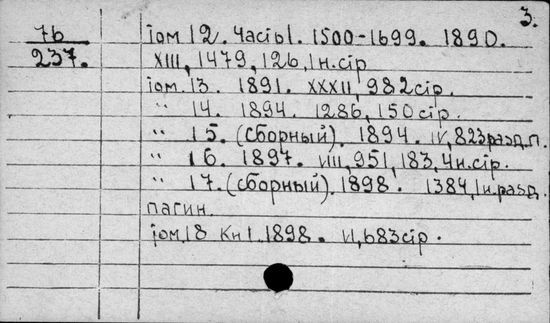 3.
76 Том 12. Часть 1. 1500-1699. 1890.
237. XIII, 1479, 126, 1 н. стр.
Том. 13. 1891. XXXII, 982 стр.
" 14. 1894. 1286, 150 стр.
" 15. (Сборный). 1894. IV, 823 разд. п.
" 16. 1897. VIII, 951, 183, 4 н. стр.
" 17. (Сборный). 1898. 1384, 1 н. разд.
пагин.
Том. 18 Кн 1. 1898. VI, 683 стр.